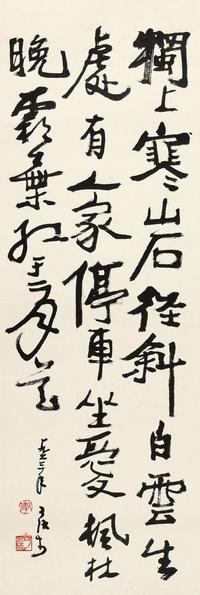 獨上寒山石径斜白雲生
處有人家停車坐愛楓林
晚霜葉紅于二月花